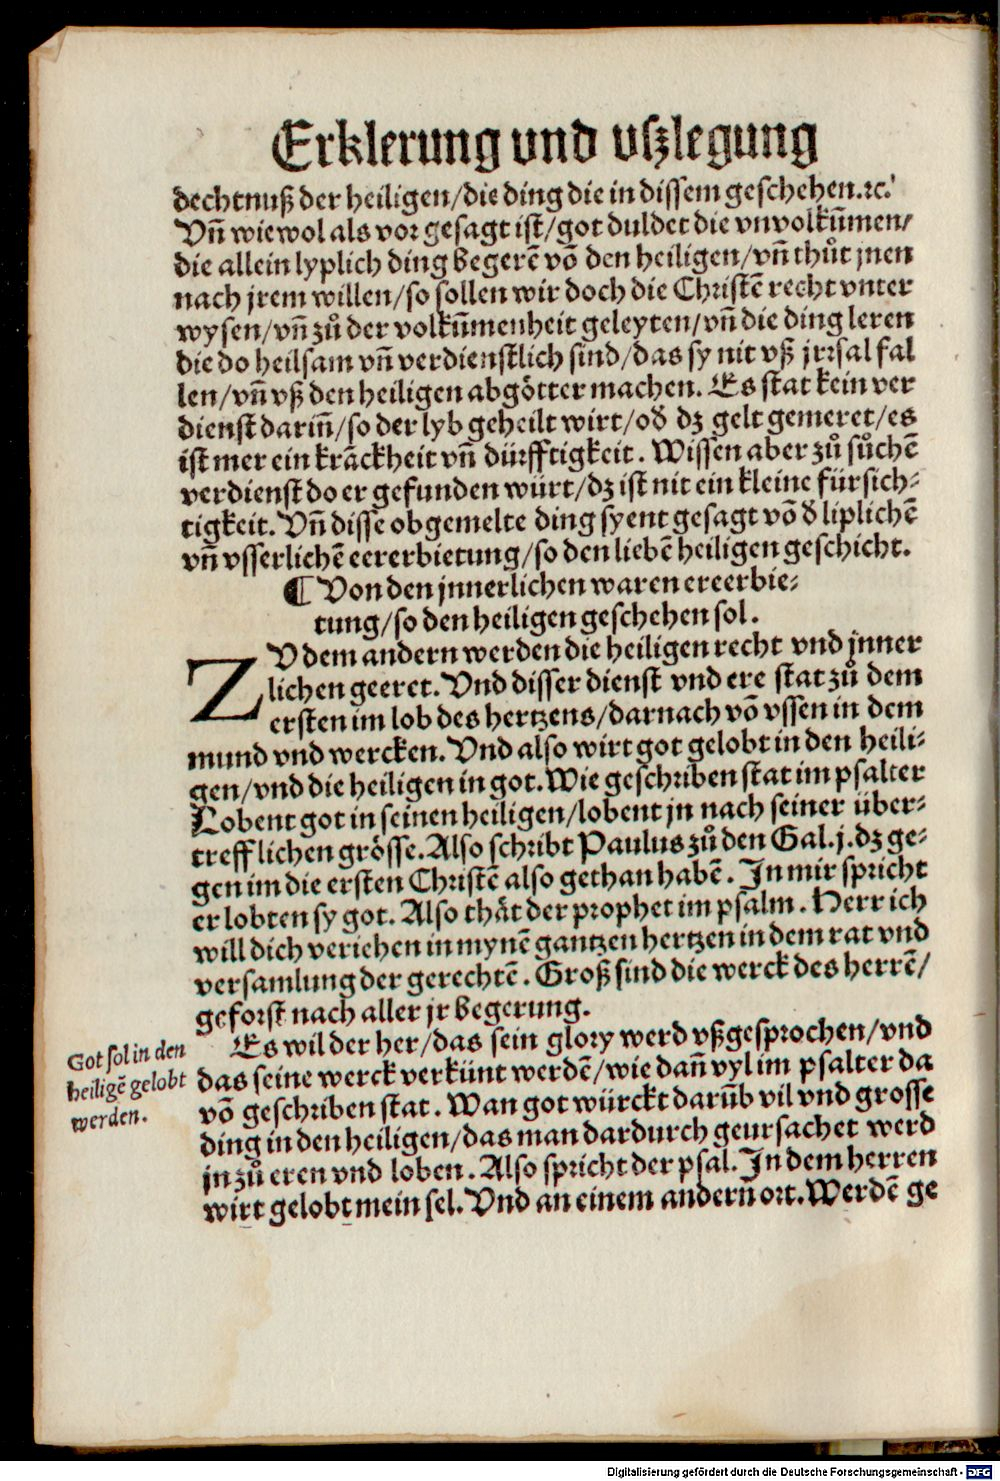 Erklerung und uſzlegung
dechtnuß der heiligen/die ding die in dissem geschehen.ꝛc.
Vn̄ wiewol als vor gesagt ist/got duldet die vnvolkūmen/
die allein lyplich ding begerē vō den heiligen/vn̄ thůt jnen
nach jrem willen/so sollen wir doch die Christē recht vnter
wysen/vn̄ zů der volkūmenheit geleyten/vn̄ die ding leren
die do heilsam vn̄ verdienstlich sind/das sy nit vß jrrsal fal
len/vn̄ vß den heiligen abgötter machen. Es stat kein ver
dienst darin̄/so der lyb geheilt wirt/od̕ dz gelt gemeret/es
ist mer ein krāckheit vn̄ dürfftigkeit. Wissen aber zů sůchē
verdienst do er gefunden würt/dz ist nit ein kleine fürsich-
tigkeit. Vn̄ disse obgemelte ding syent gesagt vō d̕ liplichē
vn̄ vsserlichē eererbietung/so den liebē heiligen geschicht.
¶ Von den jnnerlichen waren ereerbie-
tung/so den heiligen geschehen sol.
ZV dem andern werden die heiligen recht vnd jnner
lichen geeret. Vnd disser dienst vnd ere stat zů dem
ersten im lob des hertzens/darnach vō vssen in dem
mund vnd wercken. Vnd also wirt got gelobt in den heili-
gen/vnd die heiligen in got. Wie geschriben stat im psalter
Lobent got in seinen heiligen/lobent jn nach seiner über-
trefflichen grösse. Also schribt Paulus zů den Gal.j. dz ge-
gen im die ersten Christē also gethan habē. In mir spricht
er lobten sy got. Also thät der prophet im psalm. Herr ich
will dich veriehen in mynē gantzen hertzen in dem rat vnd
versamlung der gerechtē. Groß sind die werck des herrē/
geforst nach aller jr begerung.
Got sol in den
heiligē gelobt
werden.
Es wil der her/das sein glory werd vßgesprochen/vnd
das seine werck verkünt werdē/wie dan̄ vyl im psalter da
vō geschriben stat. Wan got würckt darūb vil vnd grosse
ding in den heiligen/das man dardurch geursachet werd
jn zů eren vnd loben. Also spricht der psal. In dem herren
wirt gelobt mein sel. Vnd an einem andern ort. Werdē ge
Digitalisierung gefördert durch die Deutsche Forschungsgemeinschaft - DFG